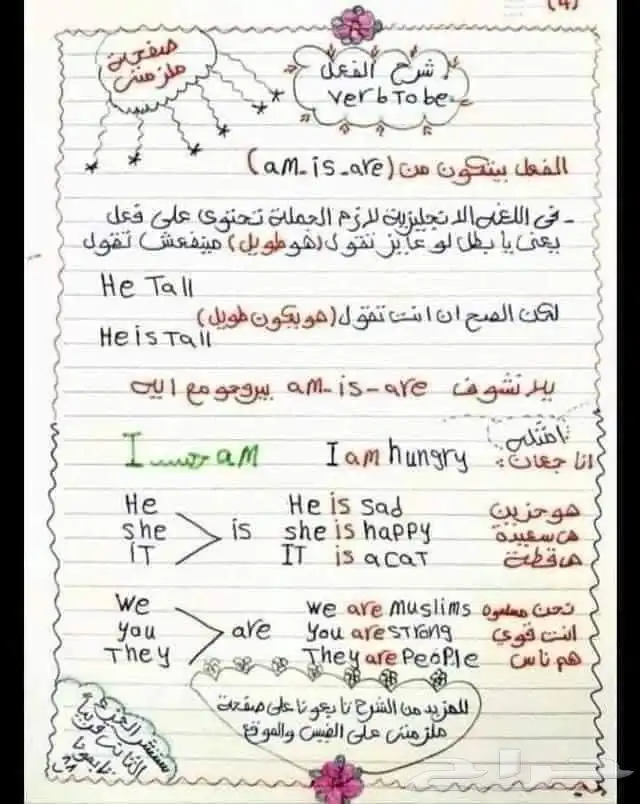 (4)
صفحة
ملزمتى
شرح الفعل
verb To be
الفعل بيتكون من (am-is-are)
- فى اللغه الانجليزية لازم الجملة تحتوى على فعل
يعنى يا بطل لو عايز تقول (هو طويل) مينفعش تقول
He Tall
لكن الصح ان انت تقول (هو يكون طويل)
He is Tall
يلا نشوف am-is-are بيروحو مع اليه
امثله
I am I am hungry انا جعان:
He He is sad هو حزين
she is she is happy هى سعيدة
iT IT is a cat هى قطة
we we are Muslims نحن مسلمون
you are You are strong انت قوي
They They are people هم ناس
للمزيد من الشرح تابعونا على صفحة
ملزمتى على الفيس والموقع
سننشر الجزء
الثانى قريباً
تابعونا
حراج